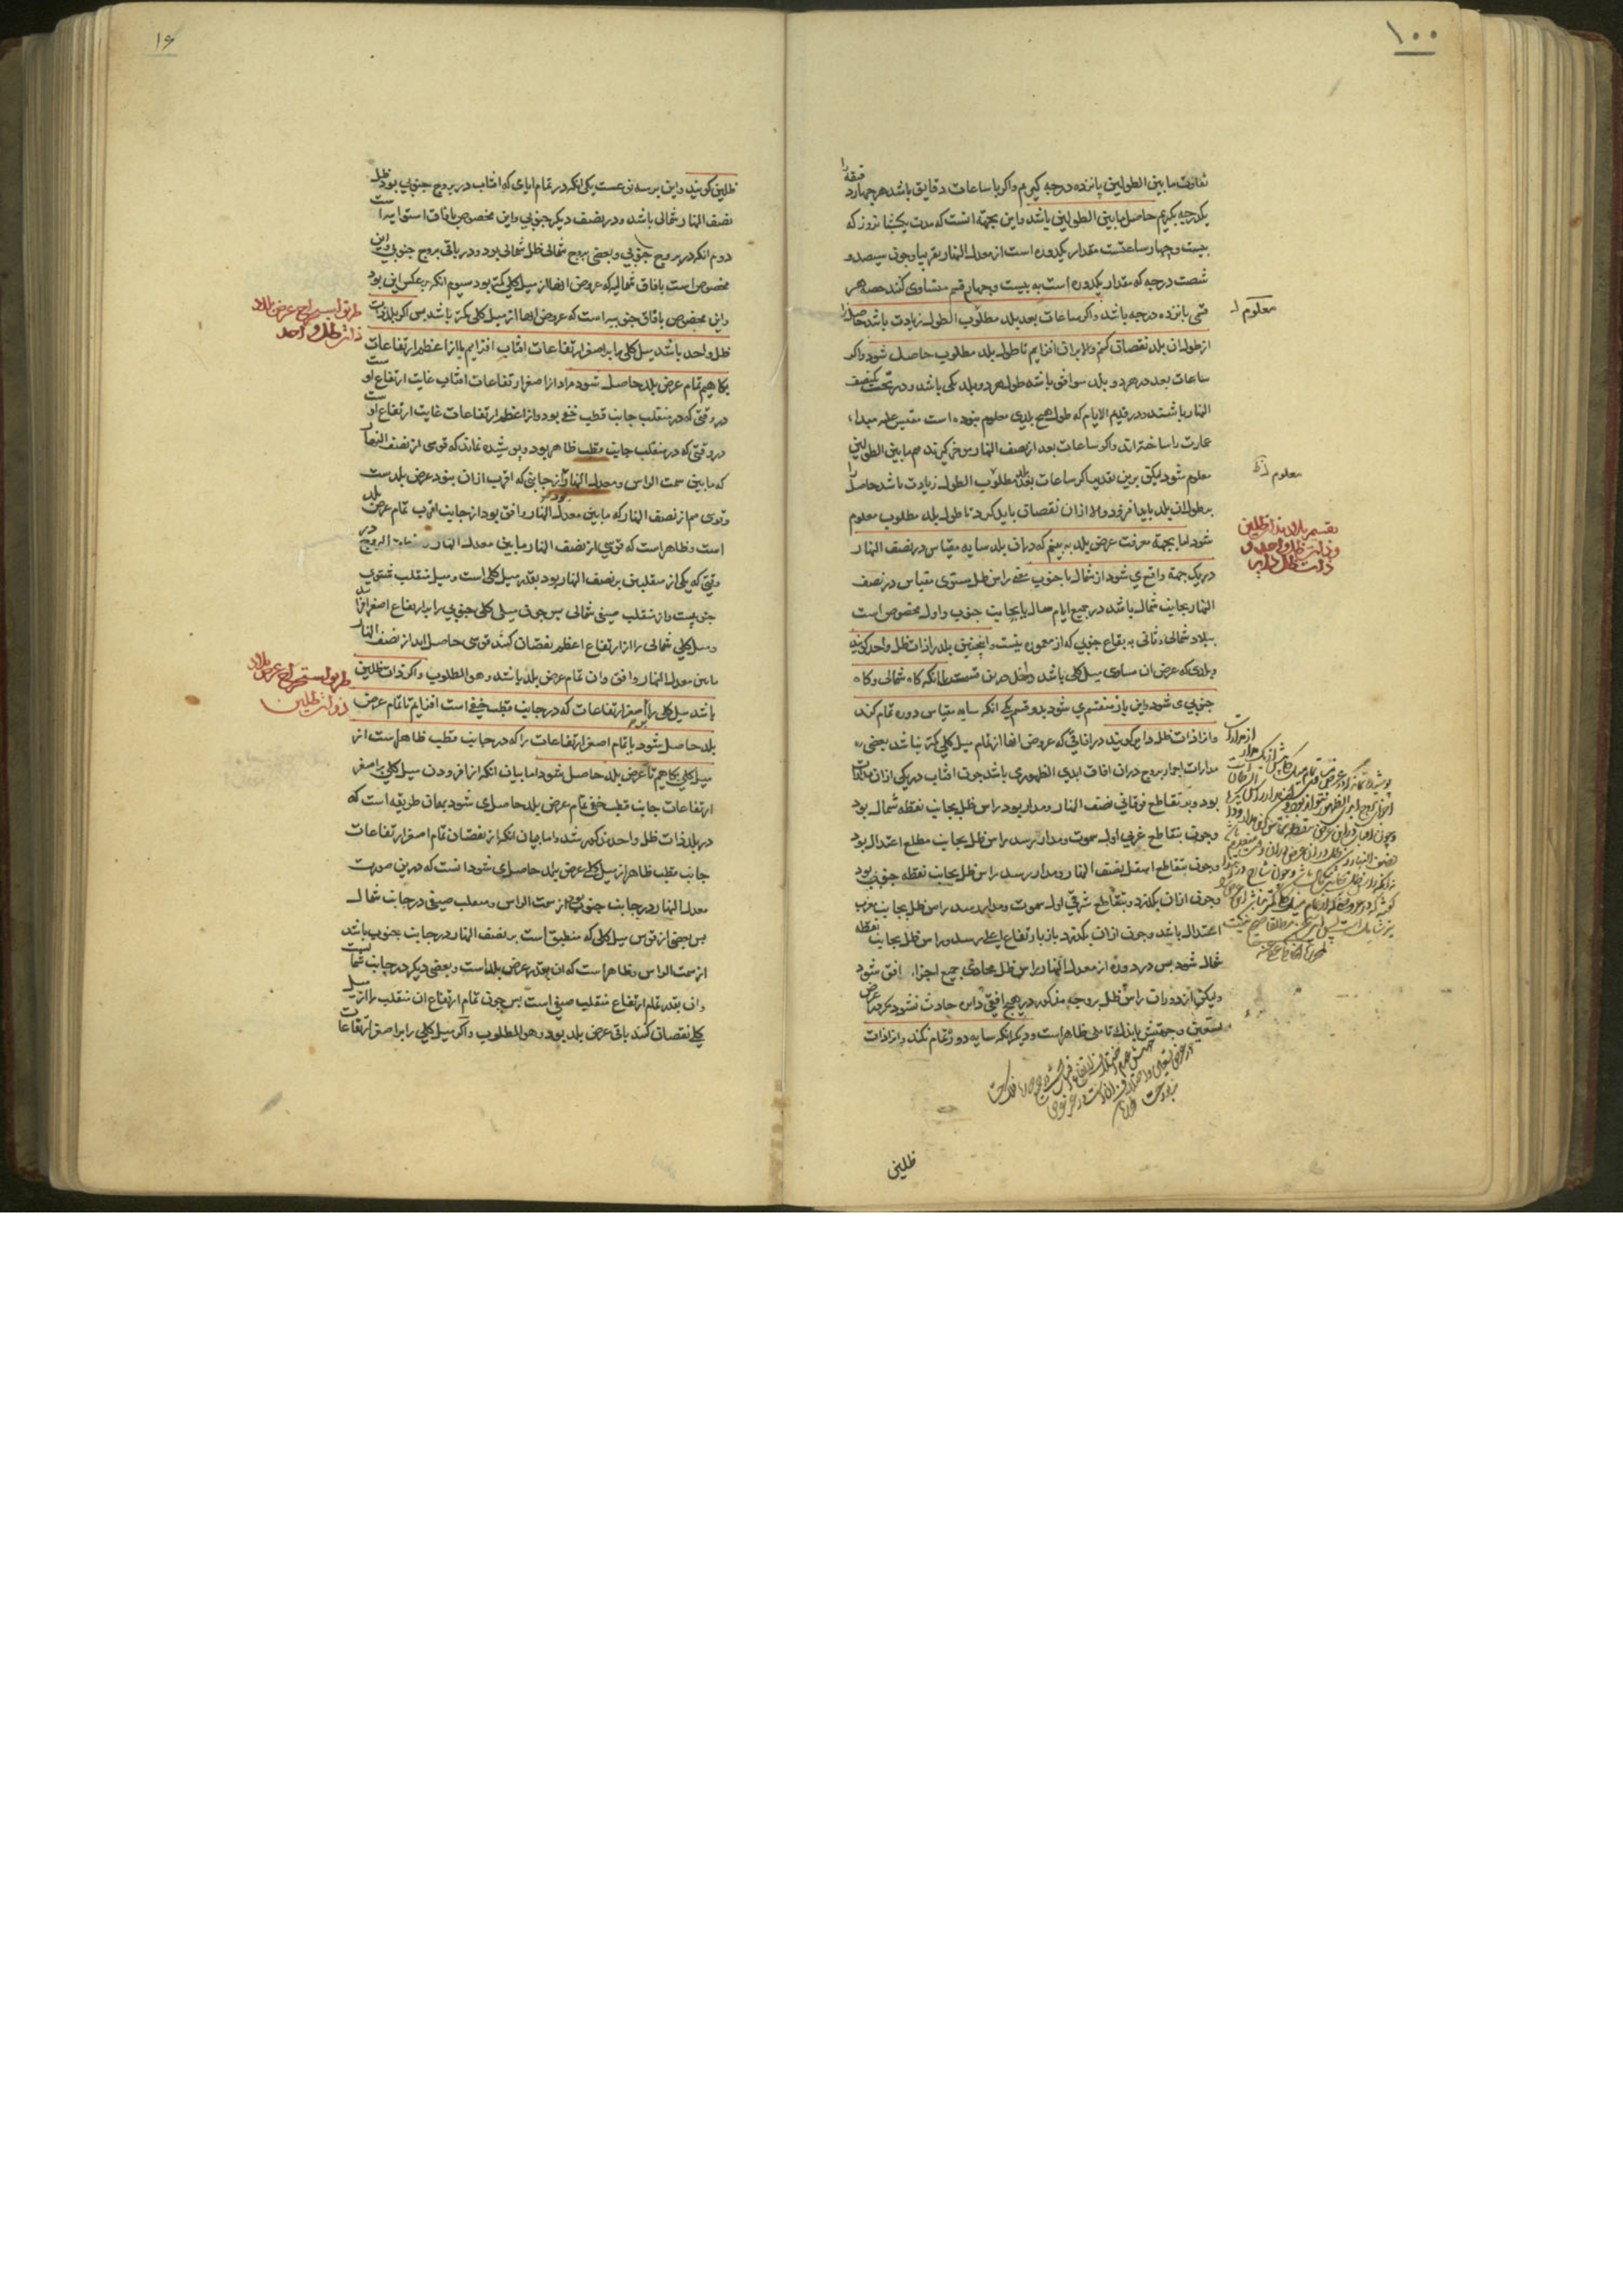 ۱۰۰
تفاوت ما بین الطولین پانزده درجه گیریم واکر با ساعات دقایق باشد هر چهار دقیقه را
یکدرجه بگیریم حاصل ما بین الطولین باشد واین بجهة انست که مدت یکشبانروز که
بیست وچهار ساعتست مقدار یکدوره است از معدل النهار تقریبا وچون سیصد و
شصت درجه که مقدار یکدوره است به بیست وچهار قسم متساوی کنند حصه هر
قسمی پانزده درجه باشد واکر ساعات بعد بلد مطلوب الطول زیادت باشد حاصل را
از طول ان بلد نقصان کنیم والا بران افزایم تا طول بلد مطلوب حاصل شود واکر
ساعات بعد در هر دو بلد موافق باشد طول هر دو بلد یکی باشد ودر تحت یکنصف
النهار باشند ودر قدیم الایام که طول هیچ بلدی معلوم نبوده است مقیس علیه مبداء
عمارت را ساخته اند واکر ساعات بعد از نصف النهار موخر گیرند هم ما بین الطولین
معلوم شود لیکن برین تقدیر اکر ساعات بعد بلد مطلوب الطول زیادت باشد حاصل را
بر طول ان بلد باید افزود والا از ان نقصان باید کرد تا طول بلد مطلوب معلوم
شود اما بجهة معرفت عرض بلد به بینیم که در ان بلد سایه مقیاس در نصف النهار
در یک جهة واقع می شود از شمال یا جنوب یعنی راس ظل مستوی مقیاس در نصف
النهار بجانب شمال باشد در جمیع ایام سال یا بجانب جنوب واول مخصوص است
ببلاد شمالی وثانی به بقاع جنوبی که از معموره نیست واینچنین بلد را ذات ظل واحد کویند
وبلدی که عرض ان مساوی میل کلی باشد داخل درین قسمست یا انکه کاه شمالی وکاه
جنوبی می شود واین باز منقسم می شود بدو قسم یکی انکه سایه مقیاس دوره تمام کند
وانرا ذات ظل دایر کویند در افاقی که عروض انها از تمام میل کلی کمتر نباشد بعضی
مدارات اجزاء بروج دران افاق ابدی الظهوری باشد چون افتاب در یکی ازان مدارات
بود وبر تقاطع فوقانی نصف النهار ومدار بود راس ظل بجانب نقطه شمال بود
وچون بتقاطع غربی اول سموت ومدار رسد راس ظل بجانب مطلع اعتدال بود
وچون بتقاطع اسفل نصف النهار ومدار رسد راس ظل بجانب نقطه جنوب بود
وچون ازان بکذرد وبتقاطع شرقی اول سموت ومدار رسد راس ظل بجانب مغرب
اعتدال باشد وچون ازان بکذرد باز بارتفاع اعلی رسد وراس ظل بجانب نقطه
شمال شود پس در دوره از معدل النهار راس ظل محاذی جمیع اجزاء افق شود
ولیکن از دوران راس ظل بروجه مذکور در هیچ افقی داس حادث نشود مکر در عرض
تسعین وجهتش باندک تاملی ظاهرست ودیکر انکه سایه دور تمام نکند وانرا ذات
معلوم له
معلوم له
تقسیم بلاد بذا ظلین
وذات ظل واحد و
ذات ظل دایر
ظلین
۱۶
ظلین کویند واین بر سه نوعست یکی انکه در تمام ایامی که افتاب در بروج جنوبی بود ظل
نصف النهار شمالی باشد ودر نصف دیکر جنوبی واین مخصوص بافاق استوا یه است
دوم انکه در بروج جنوبی وبعضی بروج شمالی ظل شمالی بود ودر باقی بروج جنوبی واین
مخصوص است بافاق شمالیه که عروض انها از میل کلی کمتر بود سیوم انکه بر عکس این بود
واین مخصوص بافاق جنوبیه است که عروض انها از میل کلی کمتر باشد پس اکر بلد ذات
ظل واحد باشد میل کلی را بر اصغر ارتفاعات افتاب افزایم یا از اعظم ارتفاعات
بکاهیم تمام عرض بلد حاصل شود مراد از اصغر ارتفاعات افتاب غایت ارتفاع اوست
در وقتی که در منقلب جانب قطب خفی بود واز اعظم ارتفاعات غایت ارتفاع اوست
در وقتی که در منقلب جانب قطب ظاهر بود وپوشیده نماند که قوسی از نصف النهار
که ما بین سمت الراس ومعدل النهار از جانبی که اقرب ازان بود عرض بلدست
وقوسی هم از نصف النهار که ما بین معدل النهار وافق بود از جانب اقرب تمام عرض بلد
است وظاهر است که قوسی از نصف النهار ما بین معدل النهار ومنطقة البروج در
وقتی که یکی از منقلبین بر نصف النهار بود بقدر میل کلی است ومیل منقلب شتوی
جنوبیست واز منقلب صیفی شمالی پس چون میل کلی جنوبی را بر ارتفاع اصغر افزایند
ومیل کلی شمالی را از ارتفاع اعظم نقصان کنند قوسی حاصل اید از نصف النهار
ما بین معدل النهار وافق وان تمام عرض بلد باشد وهو المطلوب واکر ذات ظلین
باشد میل کلی را بر اصغر ارتفاعات که در جانب قطب خفی است افزایم تا تمام عرض
بلد حاصل شود یا تمام اصغر ارتفاعات را که در جانب قطب ظاهرست از
میل کلی بکاهیم تا عرض بلد حاصل شود اما بیان انکه از افزودن میل کلی بر اصغر
ارتفاعات جانب قطب خفی تمام عرض بلد حاصل می شود بهمان طریقه است که
در بلد ذات ظل واحد مذکور شد واما بیان انکه از نقصان تمام اصغر ارتفاعات
جانب قطب ظاهر از میل کلی عرض بلد حاصل می شود انست که درین صورت
معدل النهار در جانب جنوب بود از سمت الراس ومنقلب صیفی در جانب شمال
پس بعضی از قوس میل کلی که منطبق است بر نصف النهار در جانب جنوب باشد
از سمت الراس وظاهر است که ان بقدر عرض بلد است وبعضی دیکر در جانب شمالست
وان بقدر تمام ارتفاع منقلب صیفی است پس چون تمام ارتفاع ان منقلب را از میل
کلی نقصان کنند باقی عرض بلد بود وهو المطلوب واکر میل کلی را بر اصغر ارتفاعات
طریق استخراج عرض بلاد
ذات ظل واحد
طریق استخراج عرض بلاد
ذوات ظلین